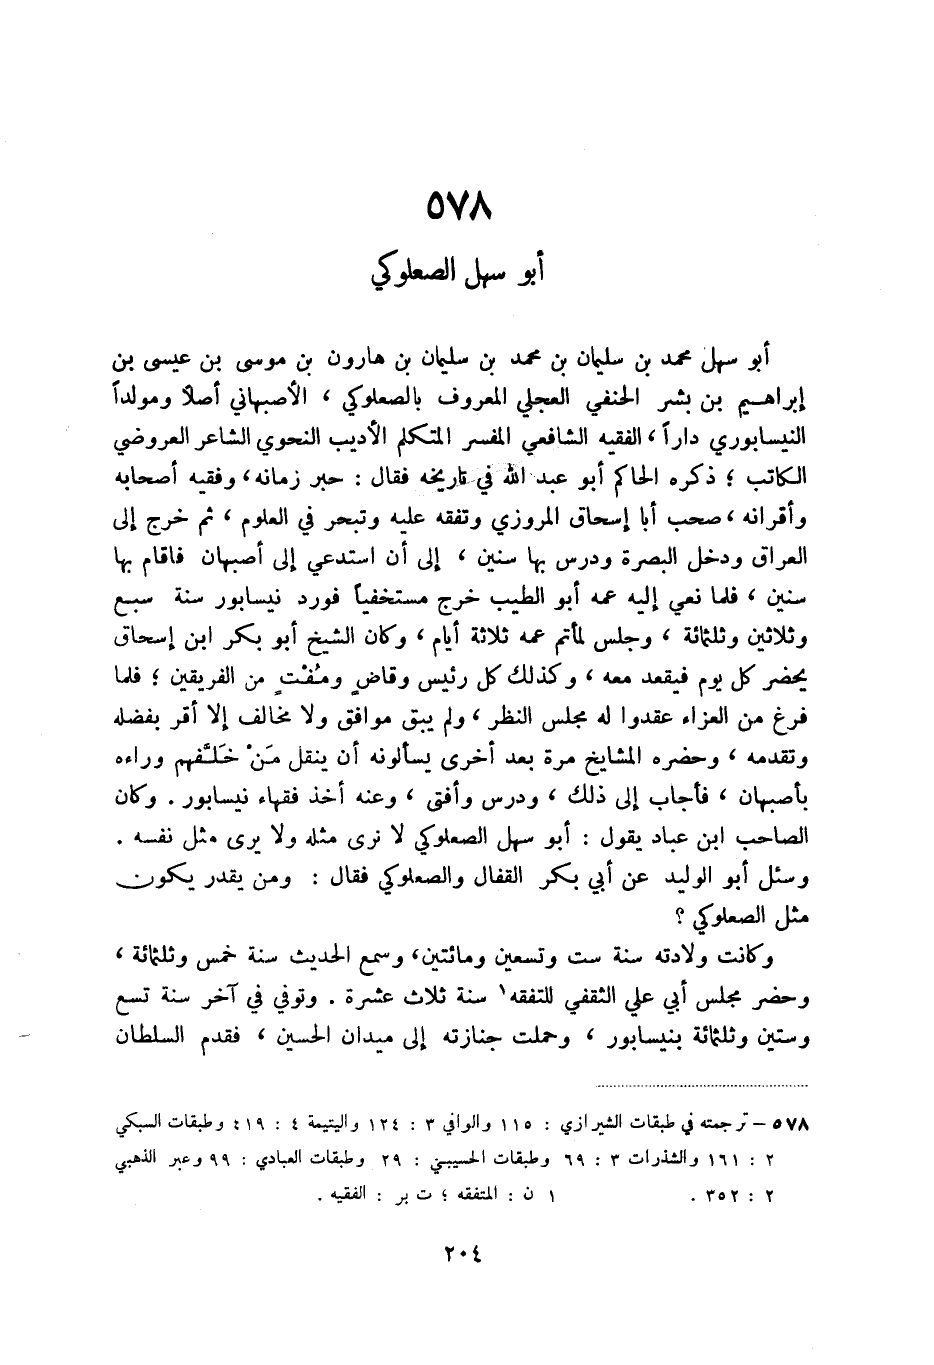 ٥٧٨
أبو سهل الصعلوكي
أبو سهل محمد بن سليمان بن محمد بن سليمان بن هارون بن موسى بن عيسى بن
إبراهيم بن بشر الحنفي العجلي المعروف بالصعلوكي ، الأصبهاني أصلاً ومولداً
النيسابوري داراً ، الفقيه الشافعي المفسر المتكلم الأديب النحوي الشاعر العروضي
الكاتب ؛ ذكره الحاكم أبو عبد الله في تاريخه فقال : حبر زمانه ، وفقيه أصحابه
وأقرانه ، صحب أبا إسحاق المروزي وتفقه عليه وتبحر في العلوم ، ثم خرج إلى
العراق ودخل البصرة ودرس بها سنين ، إلى أن استدعي إلى أصبهان فاقام بها
سنين ، فلما نعي إليه عمه أبو الطيب خرج مستخفياً فورد نيسابور سنة سبع
وثلاثين وثلثمائة ، وجلس لمأتم عمه ثلاثة أيام ، وكان الشيخ أبو بكر ابن إسحاق
يحضر كل يوم فيقعد معه ، وكذلك كل رئيس وقاضٍ ومُفْتٍ من الفريقين ؛ فلما
فرغ من العزاء عقدوا له مجلس النظر ، ولم يبق موافق ولا مخالف إلا أقر بفضله
وتقدمه ، وحضره المشايخ مرة بعد أخرى يسألونه أن ينقل مَنْ خَلَّفهم وراءه
بأصبهان ، فأجاب إلى ذلك ، ودرس وأفتى ، وعنه أخذ فقهاء نيسابور . وكان
الصاحب ابن عباد يقول : أبو سهل الصعلوكي لا نرى مثله ولا يرى مثل نفسه .
وسئل أبو الوليد عن أبي بكر القفال والصعلوكي فقال : ومن يقدر يكون
مثل الصعلوكي ؟
وكانت ولادته سنة ست وتسعين ومائتين ، وسمع الحديث سنة خمس وثلثمائة ،
وحضر مجلس أبي علي الثقفي للتفقه١ سنة ثلاث عشرة . وتوفي في آخر سنة تسع
وستين وثلثمائة بنيسابور ، وحملت جنازته إلى ميدان الحسين ، فقدم السلطان
٥٧٨ - ترجمته في طبقات الشيرازي : ١١٥ والوافي ٣ : ١٢٤ واليتيمة ٤ : ٤١٩ وطبقات السبكي
٢ : ١٦١ والشذرات ٣ : ٦٩ وطبقات الحسيني : ٢٩ وطبقات العبادي : ٩٩ وعبر الذهبي
٢ : ٣٥٢ . ١ ن : المتفقه ؛ ت بر : الفقيه .
٢٠٤